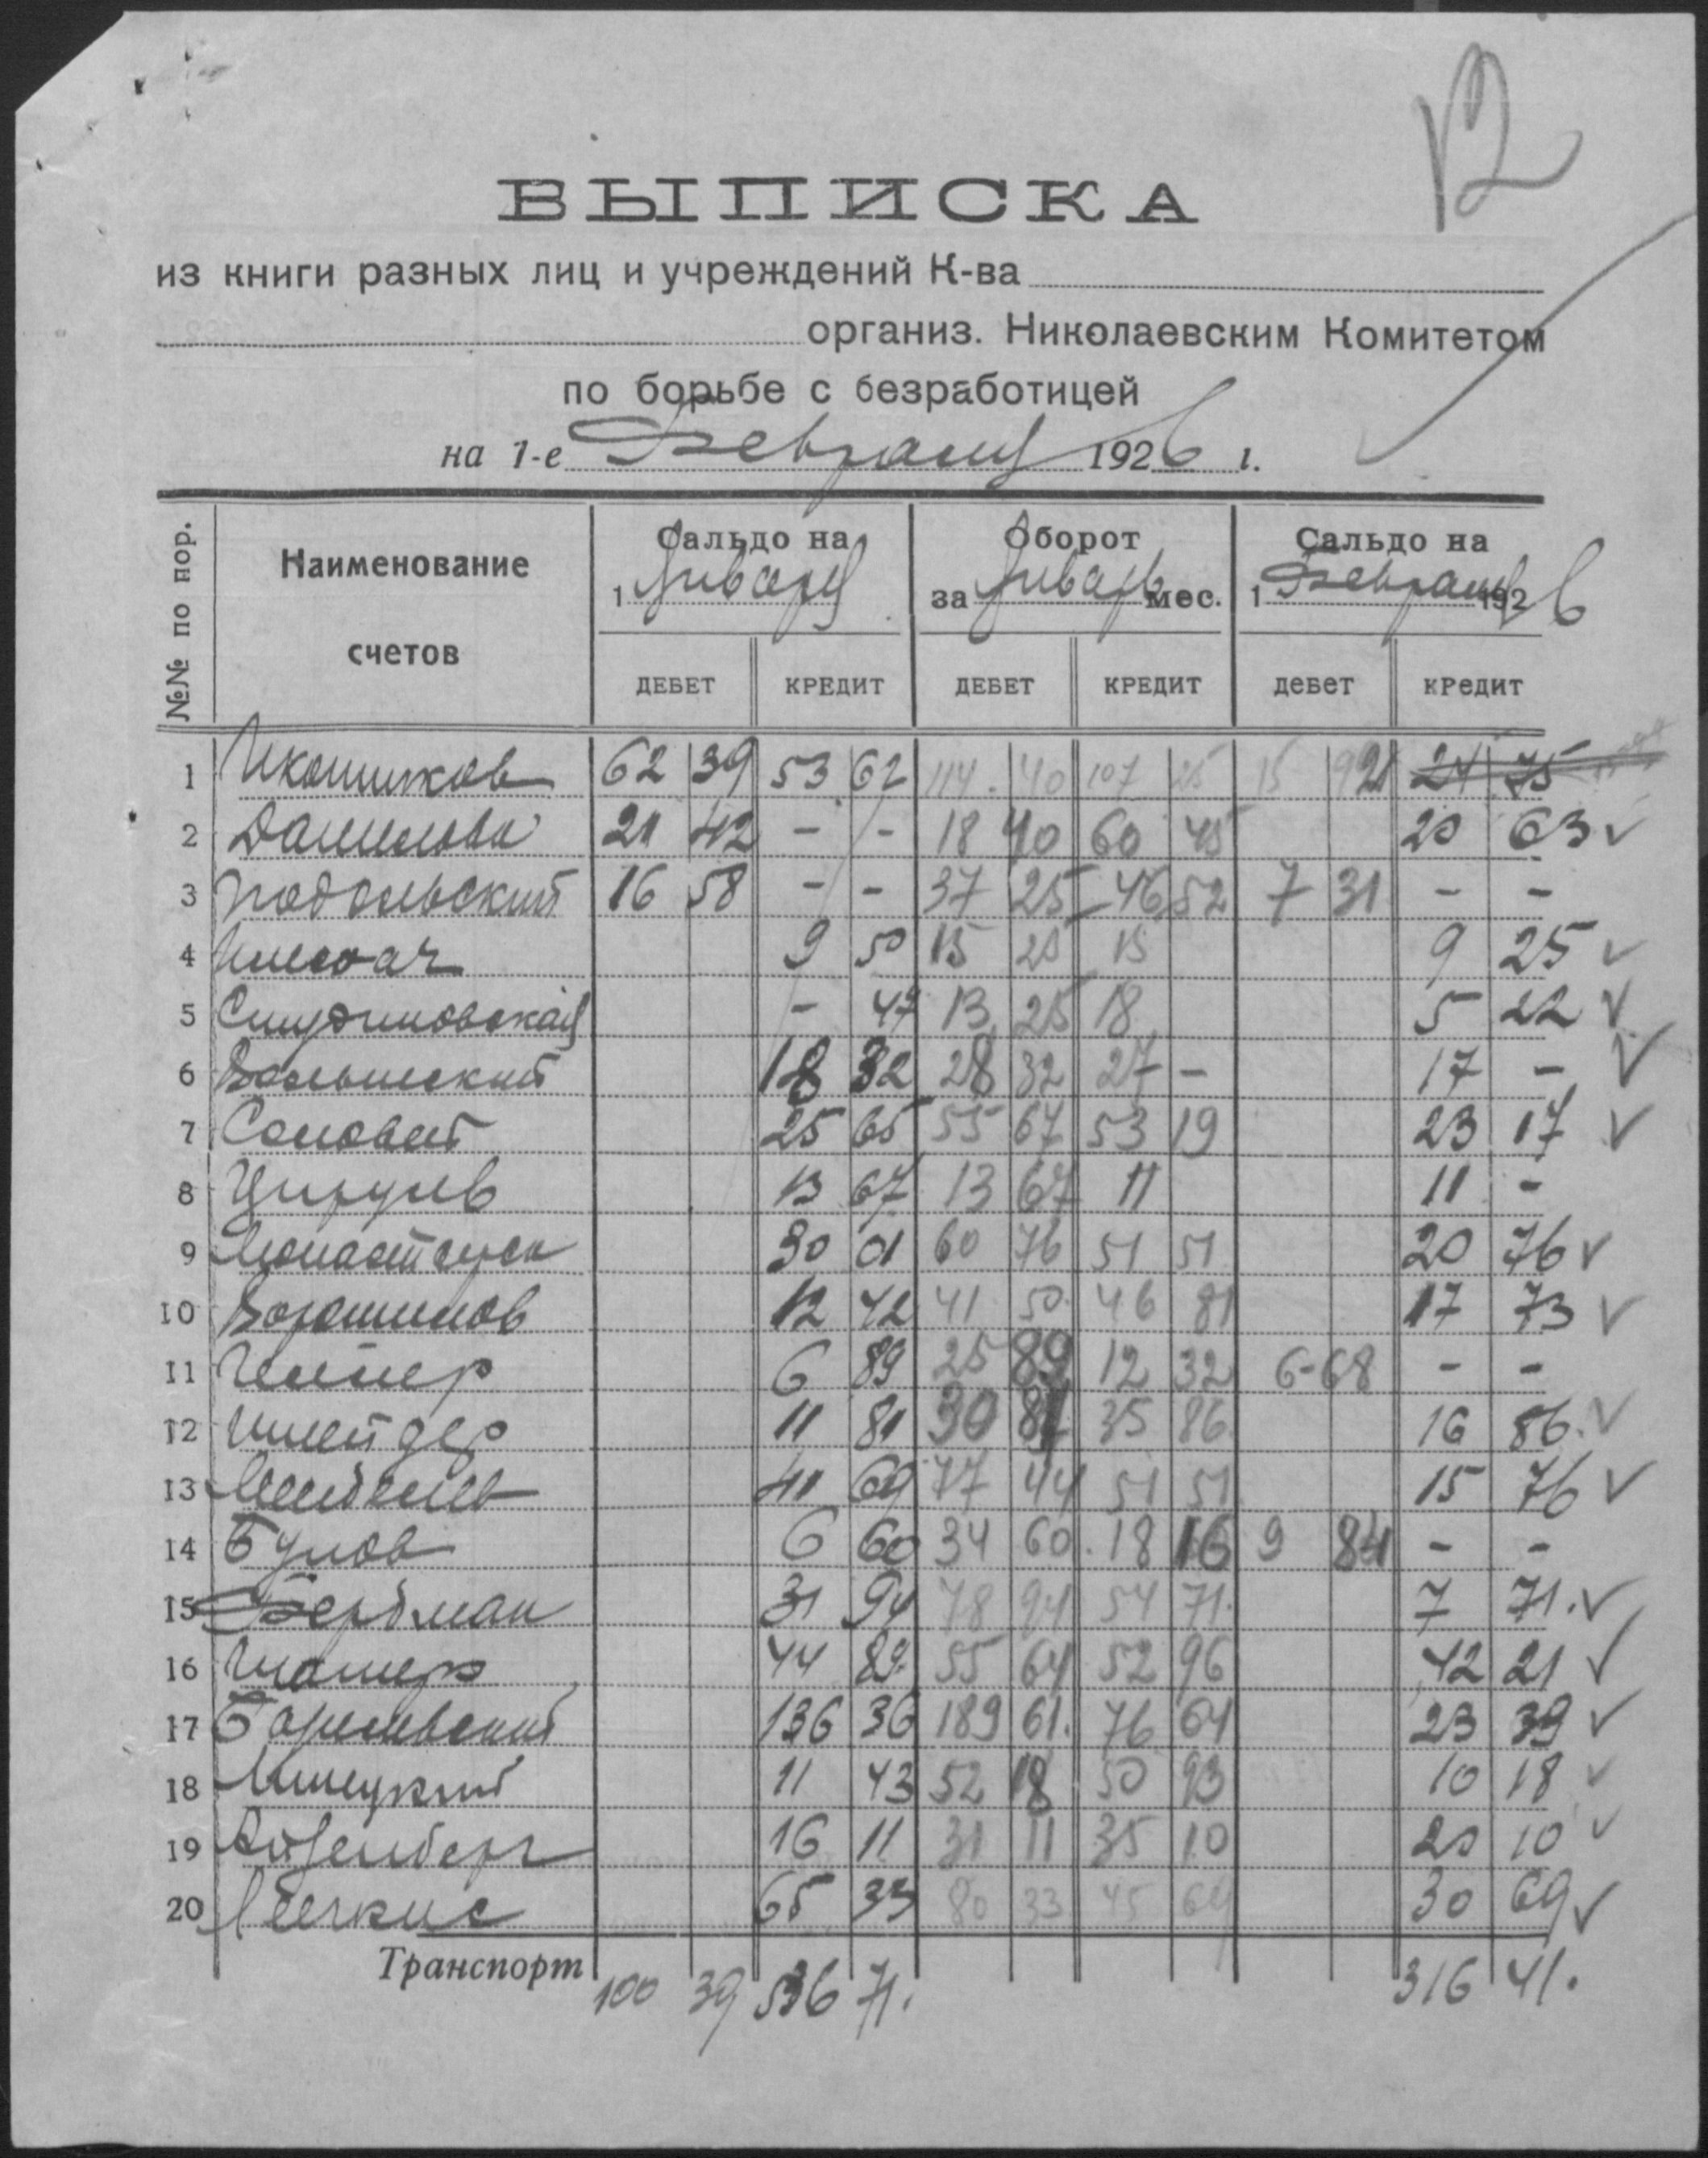 12
ВЫПИСКА
из книги разных лиц и учреждений К-ва
организ. Николаевским Комитетом
по борьбе с безработицей
на 1-е Февраля 1926 г.
№№ по пор. Наименование счетов Сальдо на 1 Января Оборот за Январь мес. Сальдо на 1 Февраля 1926
ДЕБЕТ КРЕДИТ ДЕБЕТ КРЕДИТ дебет кредит
1 Иконников 62 39 53 62 114 40 107 25 15 92 24 75
2 Данилова 21 42 - - 18 40 60 45 20 63
3 Подольский 16 58 - - 37 25 46 52 7 31 - -
4 9 50 15 25 15 9 25
5 - 47 13 25 18 5 22
6 Волынский 18 32 28 32 27 - 17 -
7 Соловей 25 65 55 67 53 19 23 17
8 Цирулев 13 67 13 67 11 11 -
9 30 01 60 76 51 51 20 76
10 12 42 41 50 46 81 17 73
11 6 89 25 89 12 32 6-68 - -
12 Шнейдер 11 81 30 81 35 86 16 86
13 41 69 77 44 51 51 15 76
14 Бунов 6 60 34 60 18 16 9 84 - -
15 Фербман 31 94 78 94 54 71 7 71
16 44 89 55 64 52 96 42 21
17 136 36 189 61 76 64 23 39
18 11 43 52 18 50 93 10 18
19 Айзенберг 16 11 31 11 35 10 20 10
20 65 33 80 33 45 69 30 69
Транспорт 100 39 536 71. 316 41.